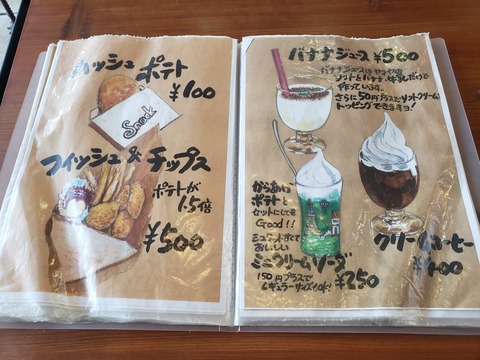 ハッシュ ポテト
¥100
Snack
フィッシュ & チップス
ポテトが
1.5倍
¥500
バナナジュース ¥500
ソフトとバナナ、牛乳だけで
作っています。
さらに50円プラスでソフトクリーム
トッピングできますヨ!
からあげ
ポテトと
セットにしても
Good!!
おいしい
ミニクリームソーダ
¥250
150円プラスで
レギュラーサイズもOK!
クリームコーヒー
¥400